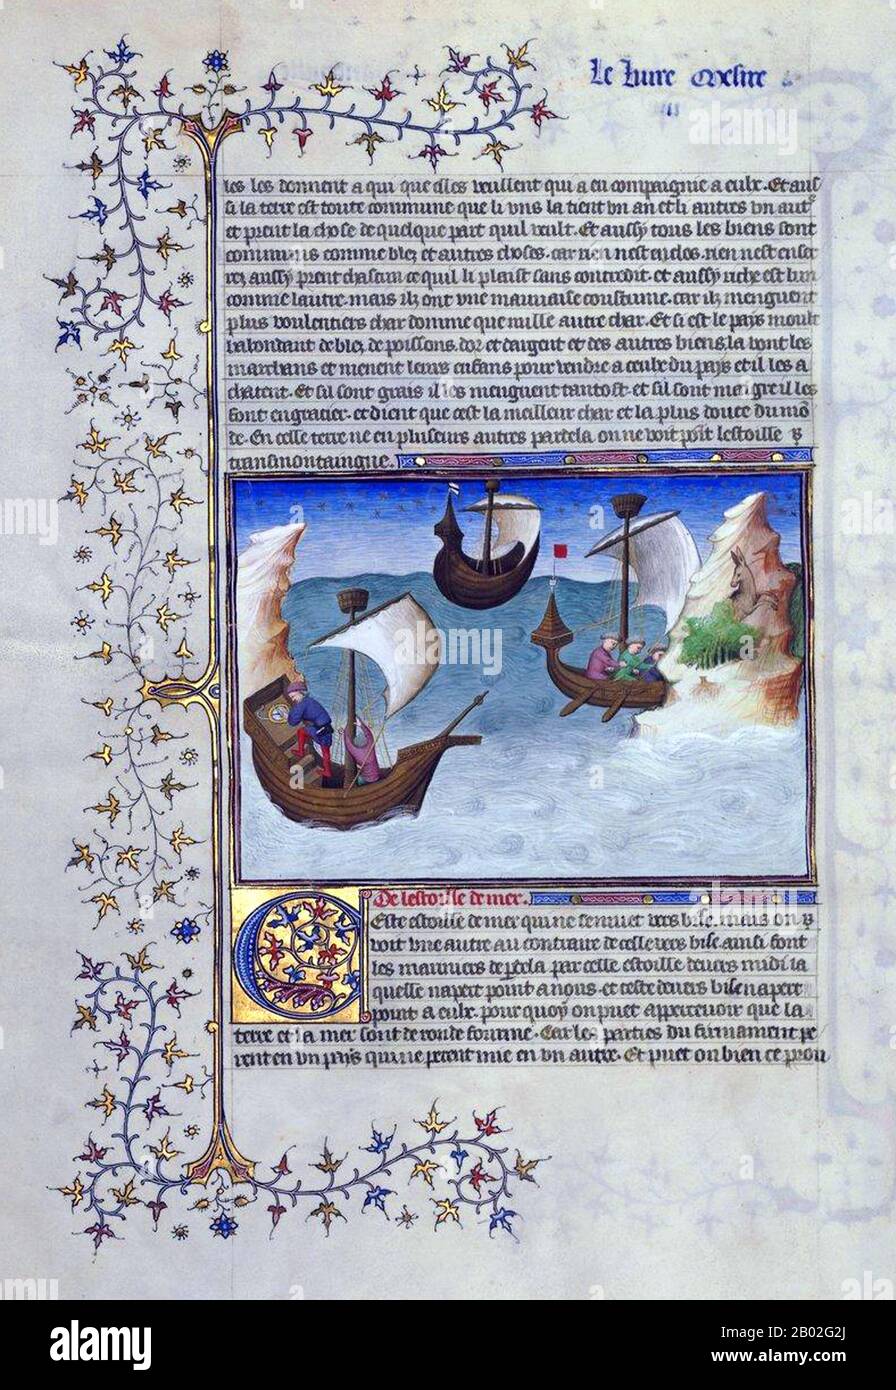 Le livre Mesire
les les donnent a qui que elles veullent qui a eu compaignie a eulx. Et auſ
ſi la terre est toute commune que li uns la tient un an et li autres un aut͛
et prent la chose de quelque part quil veult. Et auſſy tous les biens sont
communs comme blez et autres choses. car rien nest enclos. rien nest enser
rez auſſy prent chaſcun ce quil li plaiſt sans contredit. et auſſy riche est lun
comme lautre. mais ilz ont une mauvaise couſtume. car ilz menguent
plus voulentiers char domme que nulle autre char. Et ſi est le pays moult
habondant de blez de poiſſons. dor et dargent et des autres biens. la vont les
marchans et menent leurs enfans pour vendre a ceulx du pays et il les a
chatent. Et ſil sont gras il les menguent tantost. et ſil sont maigre il les
font engraiſſier. et dient que cest la meilleur char et la plus douce du mō
de. En celle terre ne en pluſeurs autres par dela on ne voit poīt leſtoille
tranſmontaingne.
De leſtoille de mer.
Ceſte eſtoille de mer qui ne se muet vers biſe. mais on
voit une autre au contraire de celle vers biſe. ainſi font
les mariniers de par la par celle eſtoille devers midi la
quelle napert point a nous. et ceſte devers biſe napert
point a eulx. pour quoy on puet appercevoir que la
terre et la mer sont de ronde fourme. Car les parties du firmament pe
rent en un pays qui ne perent mie en un autre. Et puet on bien ce prou
alamy
Image ID: 2B02G2J
www.alamy.com